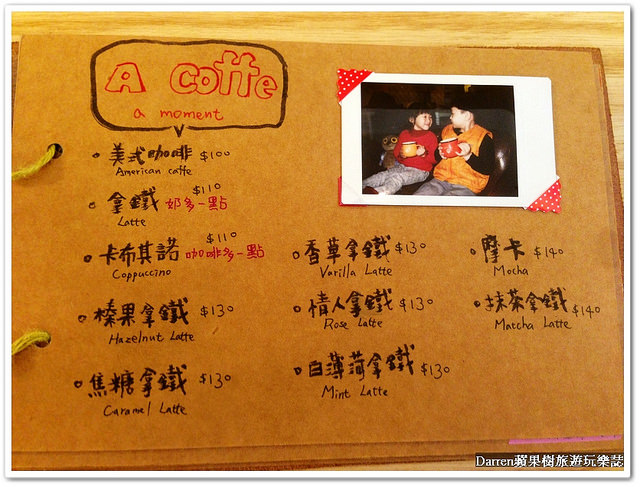 A Coffe
a moment
美式咖啡 $100
American caffe
拿鐵 $110 奶多一點
Latte
卡布其諾 $110 咖啡多一點
Coppuccino
榛果拿鐵 $130
Hazelnut Latte
焦糖拿鐵 $130
Caramel Latte
香草拿鐵 $130
Varilla Latte
情人拿鐵 $130
Rose Latte
白薄荷拿鐵 $130
Mint Latte
摩卡 $140
Mocha
抹茶拿鐵 $140
Matcha Latte
Darren蘋果樹旅遊玩樂誌